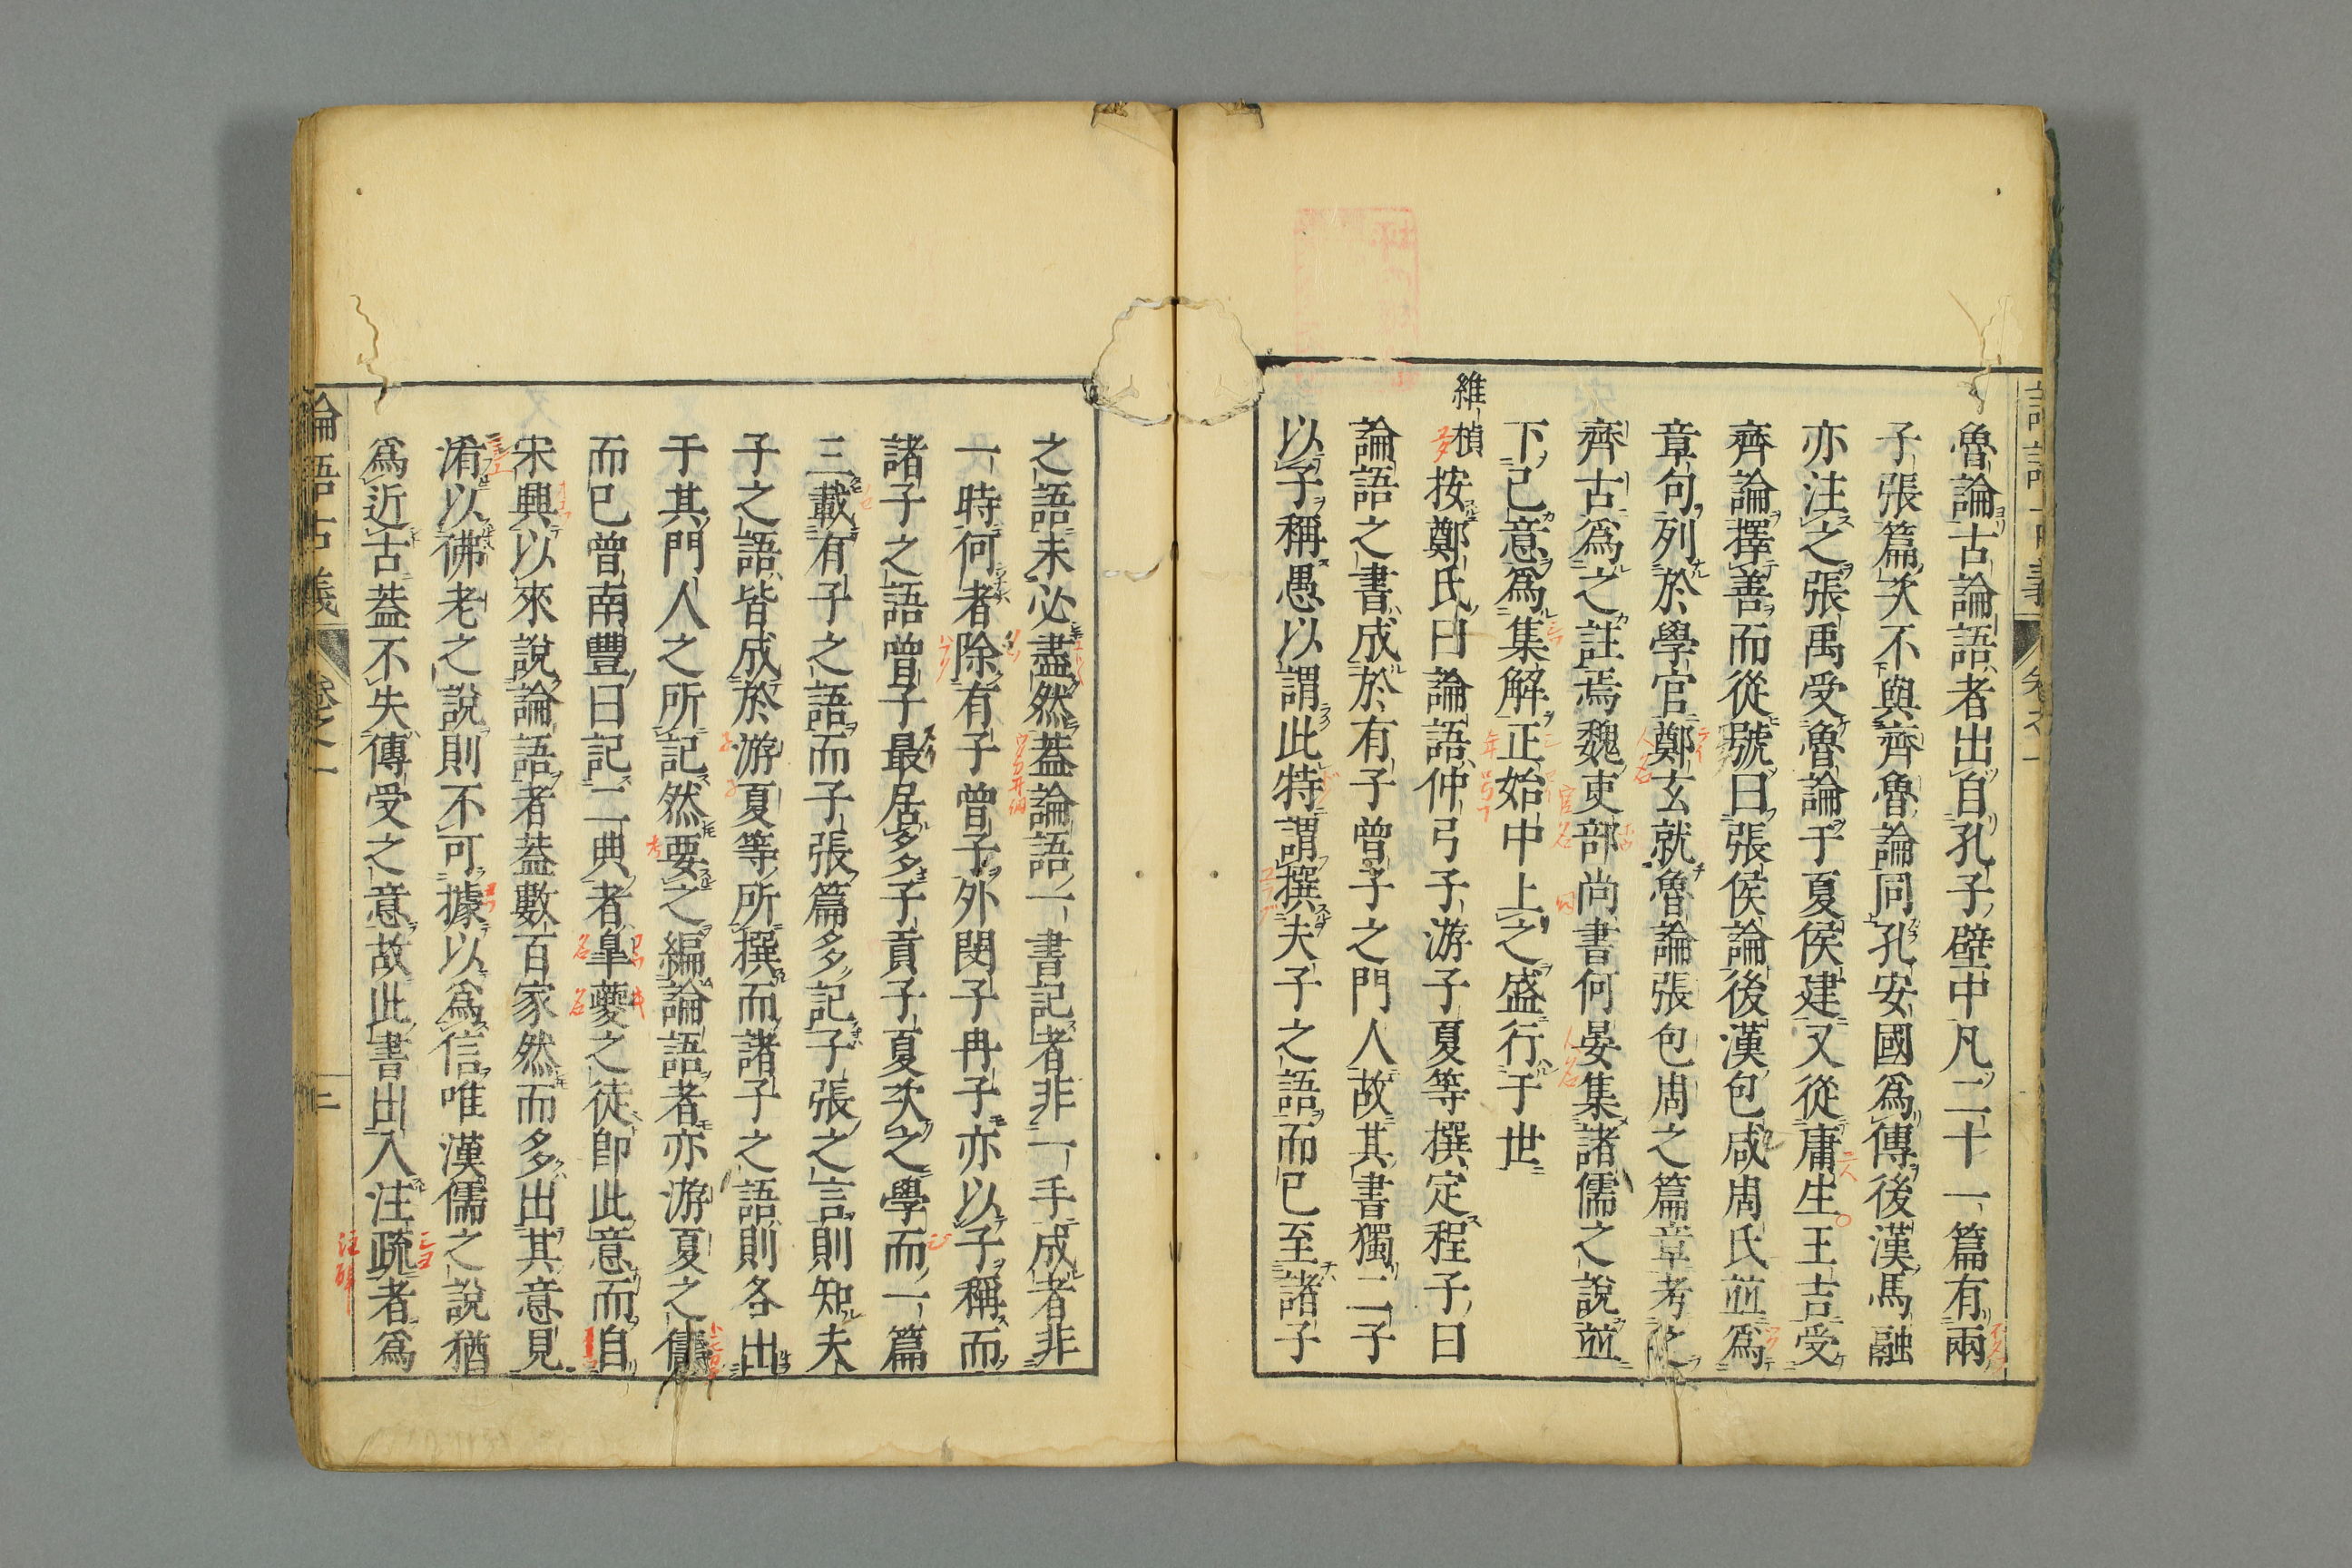 魯論古論語者出自孔子壁中凡二十一篇有兩
子張篇次不與齊魯論同孔安國為傳後漢馬融
亦注之張禹受魯論于夏侯建又從庸生王吉受
齊論擇善而從號曰張侯論後漢包咸周氏並為
章句列於學官鄭玄就魯論張包周之篇章考之
齊古為之註焉魏吏部尚書何晏集諸儒之說並
下己意為集解正始中上之盛行于世
維楨按鄭氏曰論語仲弓子游子夏等撰定程子曰
論語之書成於有子曾子之門人故其書獨二子
以子稱愚以謂此特謂撰夫子之語而已至諸子
之語未必盡然蓋論語一書記者非一手成者非
一時何者除有子曾子外閔子冉子亦以子稱而
諸子之語曾子最居多子貢子夏次之學而一篇
三載有子之語而子張篇多記子張之言則知夫
子之語皆成於游夏等所撰而諸子之語則各出
于其門人之所記然要之編論語者亦游夏之儔
而已曾南豐曰記二典者皐夔之徒即此意而自
宋興以來說論語者蓋數百家然而多出其意見
淆以佛老之說則不可據以為信唯漢儒之說猶
為近古蓋不失傳受之意故此書出入注疏者為
論語古義
卷之一
二